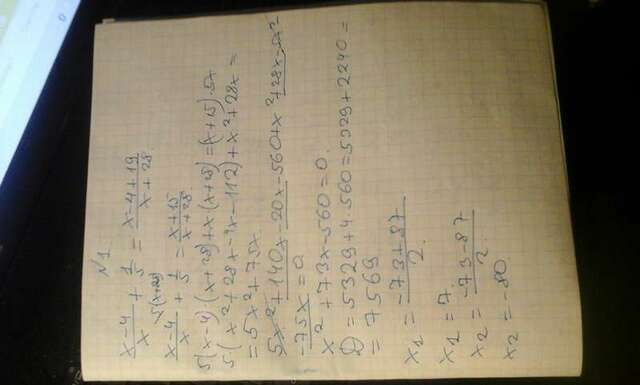 N1
x-4/x + 1/5 = x-4+19/x+28
5(x+28)
x-4/x + 1/5 = x+15/x+28
5(x-4)(x+28)+x(x+28)=(x+15)·5x
5(x²+28x-4x-112)+x²+28x=
=5x²+75x
5x²+140x-20x-560+x²+28x-5x²
-75x=0
x²+73x-560=0.
D=5329+4·560=5329+2240=
=7569
x₁=-73+87/2.
x₁=7.
x₂=-73-87/2
x₂=-80.